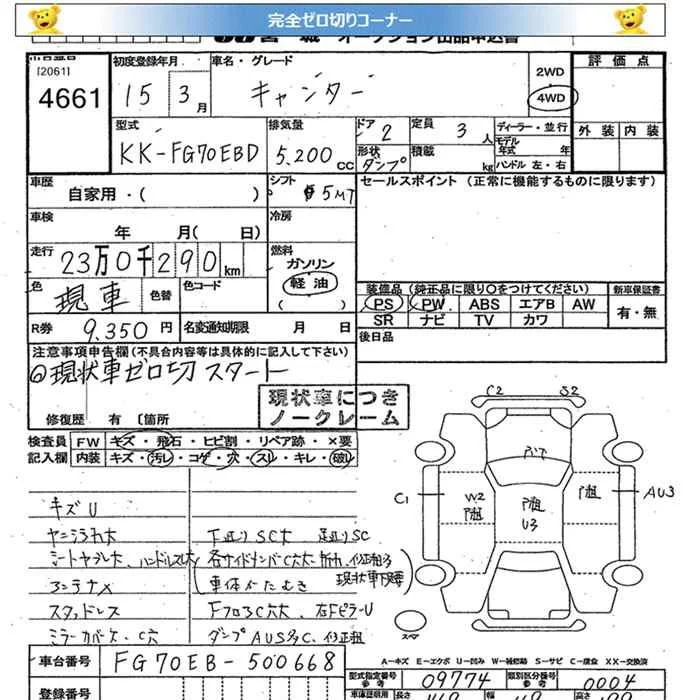 完全ゼロ切りコーナー
オークション出品申込書
[2061]
4661
初度登録年月
15 3月
車名・グレード
キャンター
2WD
4WD
評価点
外装 内装
型式
KK-FG70EBD
排気量
5.200cc
ドア 2
形状 ダンプ
定員 3人
積載 kg
ディーラー・並行
モデル年式 年
ハンドル 左・右
車歴
自家用・( )
シフト 5MT
セールスポイント (正常に機能するものに限ります)
車検 年 月( 日)
冷房
走行 23万0千290km
燃料
ガソリン
軽油
( )
色 現車 色替
色コード
装備品 (純正品に限り○をつけてください)
新車保証書
PS PW ABS エアB AW
SR ナビ TV カワ
有・無
R券 9.350円
名変通知期限 月 日
後日品
注意事項申告欄(不具合内容等は具体的に記入して下さい)
◎現状車ゼロ切スタート
現状車につき
ノークレーム
修復歴 有 〔箇所
検査員 FW キズ・飛石・ヒビ割・リペア跡・×要
記入欄 内装 キズ・汚レ・コゲ・穴・スレ・キレ・破レ
C2 S2
C1
W2
U3
AU3
キズU
ヤニ汚れ大
下廻りSC大 足廻りSC
コンテナメ
スタッドレス
ミラーカバーケ、C穴
スペア
A-キズ E-エクボ U-凹み W-補修跡 S-サビ C-腐食 XX-交換済
車台番号 FG70EB-500668
型式指定番号 参考 09774
類別区分番号 参考 0004
登録番号
車庫証明用
長さ
幅
高さ